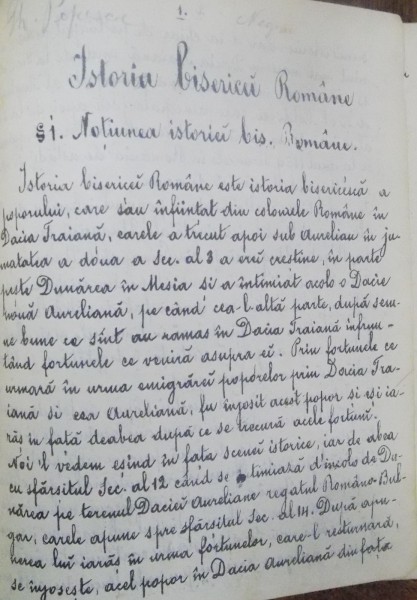 1.
Gh. Popescu
Istoria bisericii Române
§ 1. Noțiunea istoriei bis. Române.
Istoria bisericii Române este istoria bisericéscă a
poporului, care s'au înființat din coloniele Române în
Dacia Traiană, carele a trecut apoi sub Aurelian în ju-
matatea a dóua a sec. al 3 a erii crestine, în parte
peste Dunărea în Mesia si a întimiat acolo o Dacie
nouă Aureliană, pe când cea-l-altă parte, după sem-
ne bune ce sînt au ramas în Dacia Traiană înfrun-
tând fortunele ce veniră asupra ei. Prin fortunele ce
urmară în urma emigrărei popórelor prin Dacia Tra-
iană si cea Aureliană, fu înjosit acest popor si esi ia-
răs în fată deabea după ce se trecură acele fortuni.
Noi 'l vedem esind în fata scenei istorice, iar de abea
cu sfârsitul sec. al 12 când se timiază d'incolo de Du-
nărea pe terenul Daciei Aureliane regatul Româno-Bul-
gar, carele apune spre sfârsitul sec. al 14. După apu-
nerea lui iarăs în urma fortunelor, care-l resturnară,
se înjosește, acel popor în Dacia Aureliană din fata